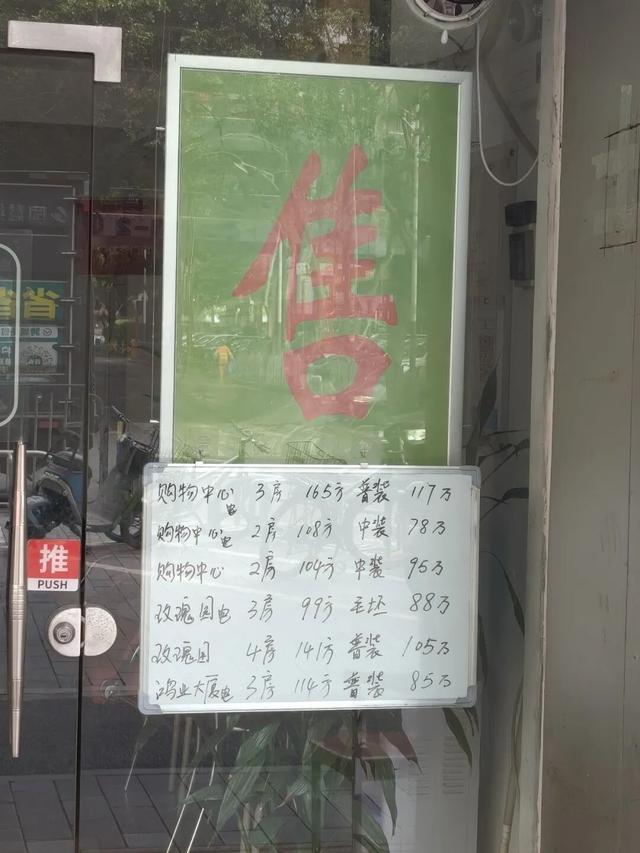 售
购物中心电 3房 165方 普装 117万
购物中心电 2房 108方 中装 78万
购物中心 2房 104方 中装 95万
玫瑰园电 3房 99方 毛坯 88万
玫瑰园 4房 141方 普装 105万
鸿业大厦电 3房 114方 普装 85万
推
PUSH
省